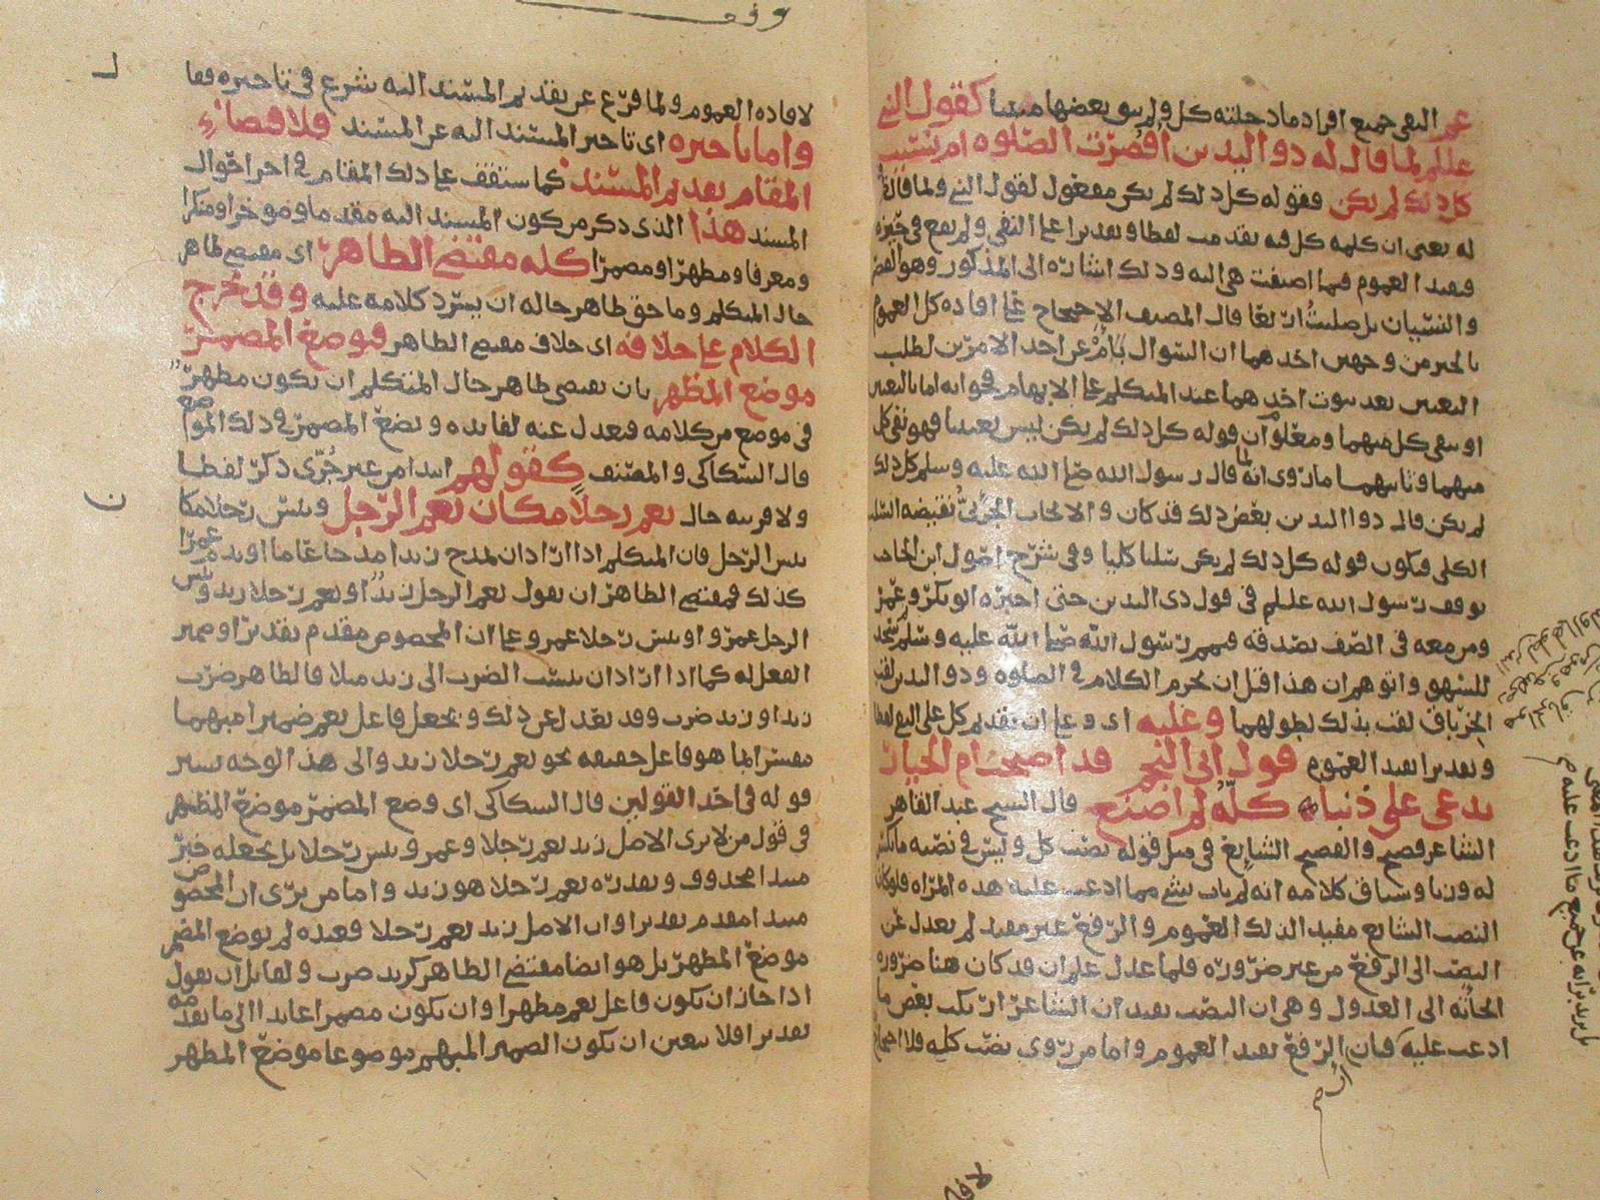 عن النفي جميع افراد ما دخلته كل ولم يبق بعضها مثبتا كقول النبي
عللم لما قال له ذو اليدين اقصرت الصلوه ام نسيت
كل ذلك لم يكن فقوله كل ذلك لم يكن مفعول لقول النبي ولما قال
له يعني ان كلمه كل فيه تقدمت لفظا وتقديرا على النفي ولم تقع في حيزه
فيفيد العموم فيما اضيفت هي اليه وذلك اشاره الى المذكور وهو القصر
والنسيان بل صليت اربعا قال المصنف الاحتجاج على افاده كل العموم
بالخبر من وجهين احدهما ان السوال بام عن احد الامرين لطلب
التعيين بعد ثبوت احدهما عند المتكلم على الابهام فجوابه اما بالتعيين
او بنفي كل منهما ومعلوم ان قوله كل ذلك لم يكن ليس تعيينا فهو نفي كل
منهما وثانيهما ما روي انه لما قال رسول الله صلى الله عليه وسلم كل ذلك
لم يكن قال ذو اليدين بعض ذلك قد كان والايجاب الجزئي نقيضه السلب
الكلي فيكون قوله كل ذلك لم يكن سلبا كليا وفي شرح اصول ابن الحاجب
توقف رسول الله عللم في قول ذي اليدين حتى اخبره ابو بكر وعمر
ومن معه في الصف بصدقه فتمم رسول الله صلى الله عليه وسلم وسجد
للسهو واتوهم ان هذا قبل ان يحرم الكلام في الصلوه وذو اليدين لقب
الخرباق لقب بذلك لطولهما وعليه اي وعلى ان تقديم كل على النفي لفظا
وتقديرا يفيد العموم قول ابي النجم قد اصبحت ام الخيار
تدعي علي ذنبا كله لم اصنع قال الشيخ عبد القاهر
الشاعر فصيح والفصيح الشايع في مثل قوله نصب كل وليس في نصبه ما يكسر
له وزنا وسياق كلامه انه لم يات بشي مما ادعت عليه هذه المراه فلو كان
النصب الشايع مفيدا لذلك العموم والرفع غير مفيد لم يعدل عن
النصب الى الرفع من غير ضروره فلما عدل علم ان قد كان هنا ضروره
الجاته الى العدول وهي ان النصب يفيد ان الشاعر ارتكب بعض ما
ادعت عليه فبان الرفع يفيد العموم واما من روى بنصب كله فلا احتجاج
لافاده العموم ولما فرغ عن تقديم المسند اليه شرع في تاخيره فقا
واما تاخيره اي تاخير المسند اليه عن المسند فلاقتضاء
المقام تقديم المسند كما ستقف على ذلك المقام في اخر احوال
المسند هذا الذي ذكر من كون المسند اليه مقدما وموخرا ومنكرا
ومعرفا ومظهرا ومضمرا كله مقتضى الظاهر اي مقتضى ظاهر
حال المتكلم وما حق ظاهر حاله ان يسرد كلامه عليه وقد خرج
الكلام على خلافه اي خلاف مقتضى الظاهر فيوضع المضمر
موضع المظهر بان يقتضي ظاهر حال المتكلم ان يكون مظهر
في موضع من كلامه فيعدل عنه لفايده ويضع المضمر في ذلك الموا ضع
قال السكاكي والمصنف كقولهم ابتدا من غير جرى ذكر لفظا
ولا قرينه حال نعم رجلا مكان نعم الرجل وبئس رجلا مكا
بئس الرجل فان المتكلم اذا اراد ان يمدح زيدا مدحا عاما او يذم عمرا
كذلك فمقتضى الظاهر ان يقول نعم الرجل زيد او نعم رجلا زيد وبئس
الرجل عمرو او بئس رجلا عمرو على ان المخصوص مقدم تقديرا وضمير
الفعل له كما اذا اراد ان ينسب الضرب الى زيد مثلا فالظاهر ضرب
زيد او زيد ضرب وقد يعدل عن ذلك ويجعل فاعل نعم ضميرا مبهما
مفسرا بما هو فاعل حقيقه نحو نعم رجلا زيد والى هذا الوجه يشير
قوله في احد القولين قال السكاكي اي وضع المضمر موضع المظهر
في قول من لا يرى الاصل زيد نعم رجلا وعمرو بئس رجلا بل يجعله خبر
مبتدا محذوف وتقديره نعم رجلا هو زيد واما من يرى ان المخصوص
مبتدا مقدم تقديرا وان الاصل زيد نعم رجلا فعنده لم يوضع المضمر
موضع المظهر بل هو ايضا مقتضى الظاهر كزيد ضرب ولقايل ان يقول
اذا جاز ان يكون فاعل نعم مظهرا وان يكون مضمرا عايدا الى ما تقدمه
تقديرا فلا يتعين ان يكون الضمير المبهم موضوعا موضع المظهر